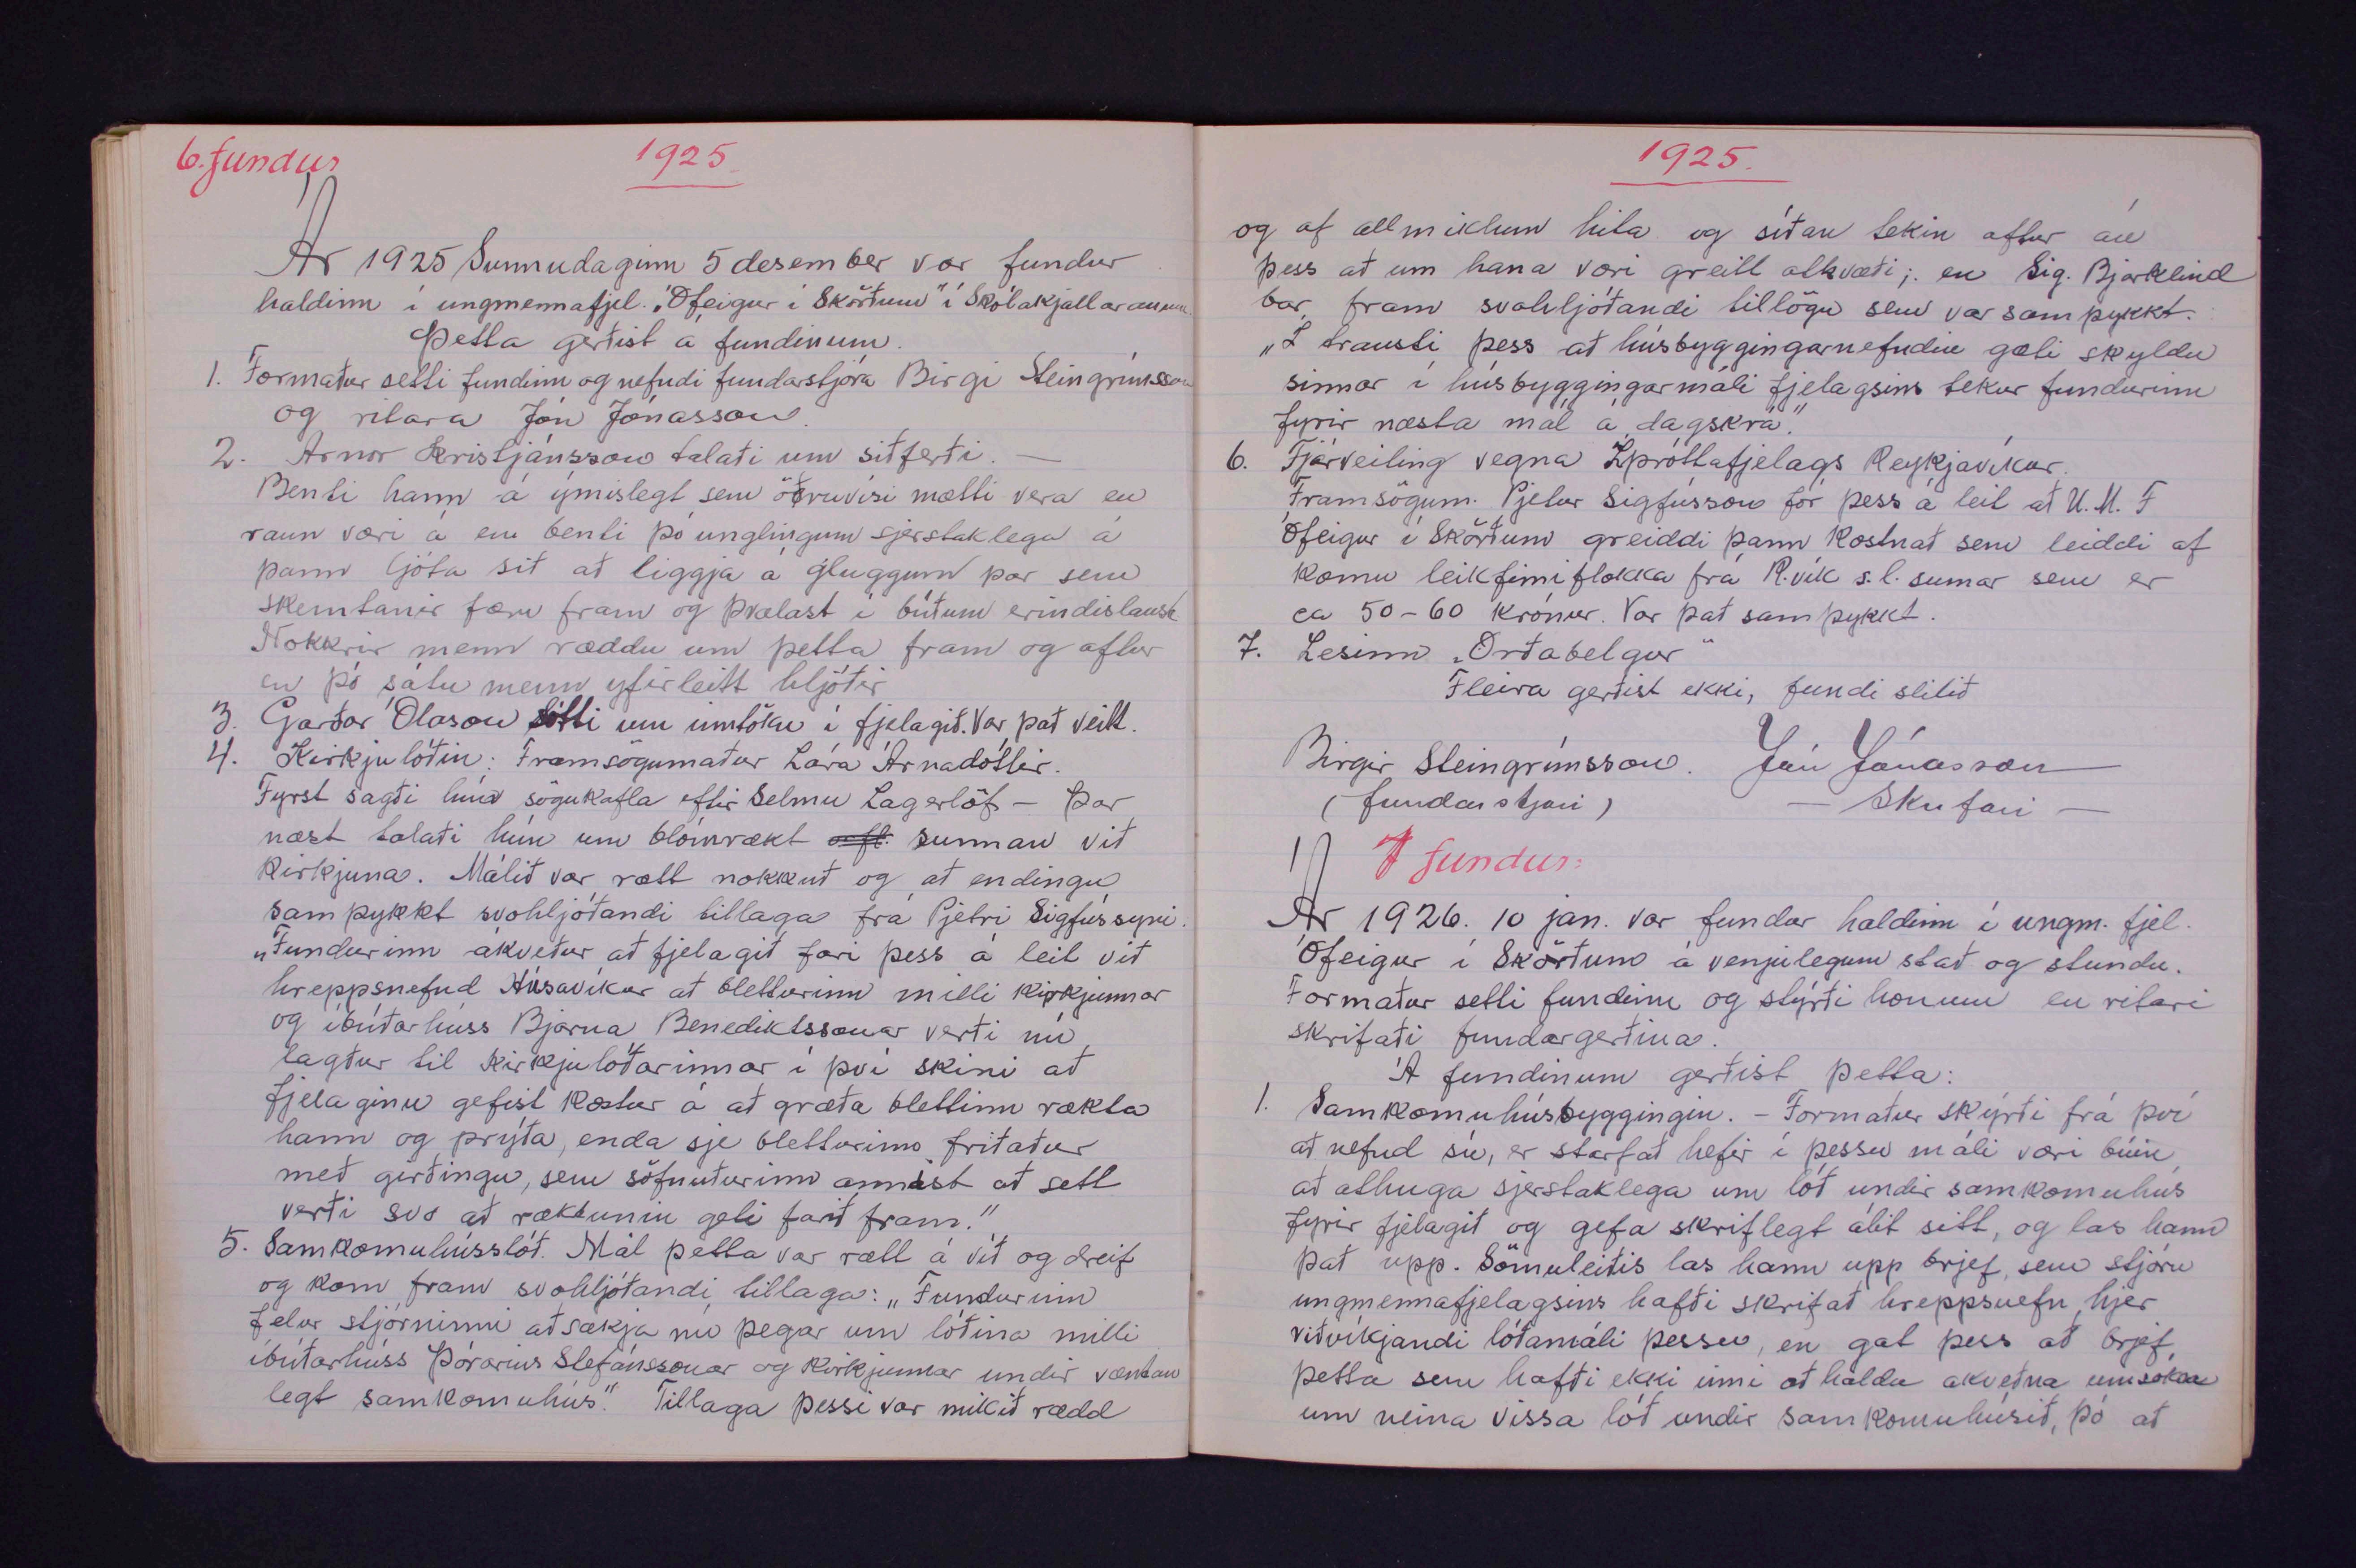 6. fundur
1925
Ár 1925 Sunnudaginn 5 desember var fundur
haldinn í ungmennafjel. „Ófeigur í Skörðum" í Skólakjallaranum.
Þetta gerðist á fundinum.
1. Formaður setti fundinn og nefndi fundarstjóra Birgi Steingrímsson
og ritara Jón Jónasson.
2. Arnor Kristjánsson talaði um siðferði. —
Benti hann á ýmislegt sem öðruvísi mætti vera en
raun væri á en benti þó unglingum sjerstaklega á
þann ljóta sið að liggja á gluggum þar sem
skemtanir færu fram og þvælast í búðum erindislaust
Nokkrir menn ræddu um þetta fram og aftur
en þó sátu menn yfirleitt hljóðir
3. Garðar Ólason sótti um inntöku í fjelagið. Var það veitt.
4. Kirkjulóðin: Framsögumaður Lára Árnadóttir.
Fyrst sagði hún sögukafla eftir Selmu Lagerlöf – Þar
næst talaði hún um blómrækt sunnan við
kirkjuna. Málið var rætt nokkuð og að endingu
samþykkt svohljóðandi tillaga frá Pjetri Sigfússyni.
„Fundurinn ákveður að fjelagið fari þess á leit við
hreppsnefnd Húsavíkur að bletturinn milli kirkjunnar
og íbúðarhúss Bjarna Benediktssonar verði nú
lagður til kirkjulóðarinnar í því skini að
fjelaginu gefist kostur á að græða blettinn rækta
hann og prýða, enda sje bletturinn friðaður
með girðingu, sem söfnuðurinn annist að sett
verði svo að ræktunin geti farið fram."
5. Samkomuhússlóð. Mál þetta var rætt á víð og dreif
og kom fram svohljóðandi tillaga: „Fundurinn
felur stjórninni að sækja nú þegar um lóðina milli
íbúðarhúss Þórarins Stefánssonar og kirkjunnar undir væntan
legt samkomuhús." Tillaga þessi var mikið rædd
1925.
og af allmiklum hita og síðan tekin aftur án
þess að um hana væri greitt atkvæði; en Sig. Bjarklind
bar fram svohljóðandi tillögu sem var samþykkt.
„Í trausti þess að húsbyggingarnefndin gæti skyldu
sinnar í húsbyggingarmáli fjelagsins tekur fundurinn
fyrir næsta mál á dagskrá."
6. Fjárveiting vegna Íþróttafjelags Reykjavíkur.
Framsögum. Pjetur Sigfússon fór þess á leit að U.M.F
Ófeigur í Skörðum greiddi þann kostnað sem leiddi af
komu leikfimiflokka frá R.vík s.l. sumar sem er
ca 50-60 krónur. Var það samþykkt.
7. Lesinn „Orðabelgur"
Fleira gerðist ekki, fundi slitið
Birgir Steingrímsson. Jón Jónasson
(fundarstjóri) — Skrifari —
7 fundur:
Ár 1926. 10 jan. var fundur haldinn í ungm. fjel.
Ófeigur í Skörðum á venjulegum stað og stundu.
Formaður setti fundinn og stýrði honum en ritari
skrifaði fundargerðina.
Á fundinum gerðist þetta:
1. Samkomuhúsbyggingin. – Formaður skýrði frá því
að nefnd sú, er starfað hefir í þessu máli væri búin
að athuga sjerstaklega um lóð undir samkomuhús
fyrir fjelagið og gefa skriflegt álit sitt, og las hann
það upp. Sömuleiðis las hann upp brjef, sem stjórn
ungmennafjelagsins hafði skrifað hreppsnefn hjer
viðvíkjandi lóðamáli þessu, en gat þess að brjef
þetta sem hafði ekki inni að halda ákveðna umsókn
um neina vissa lóð undir samkomuhúsið, þó að